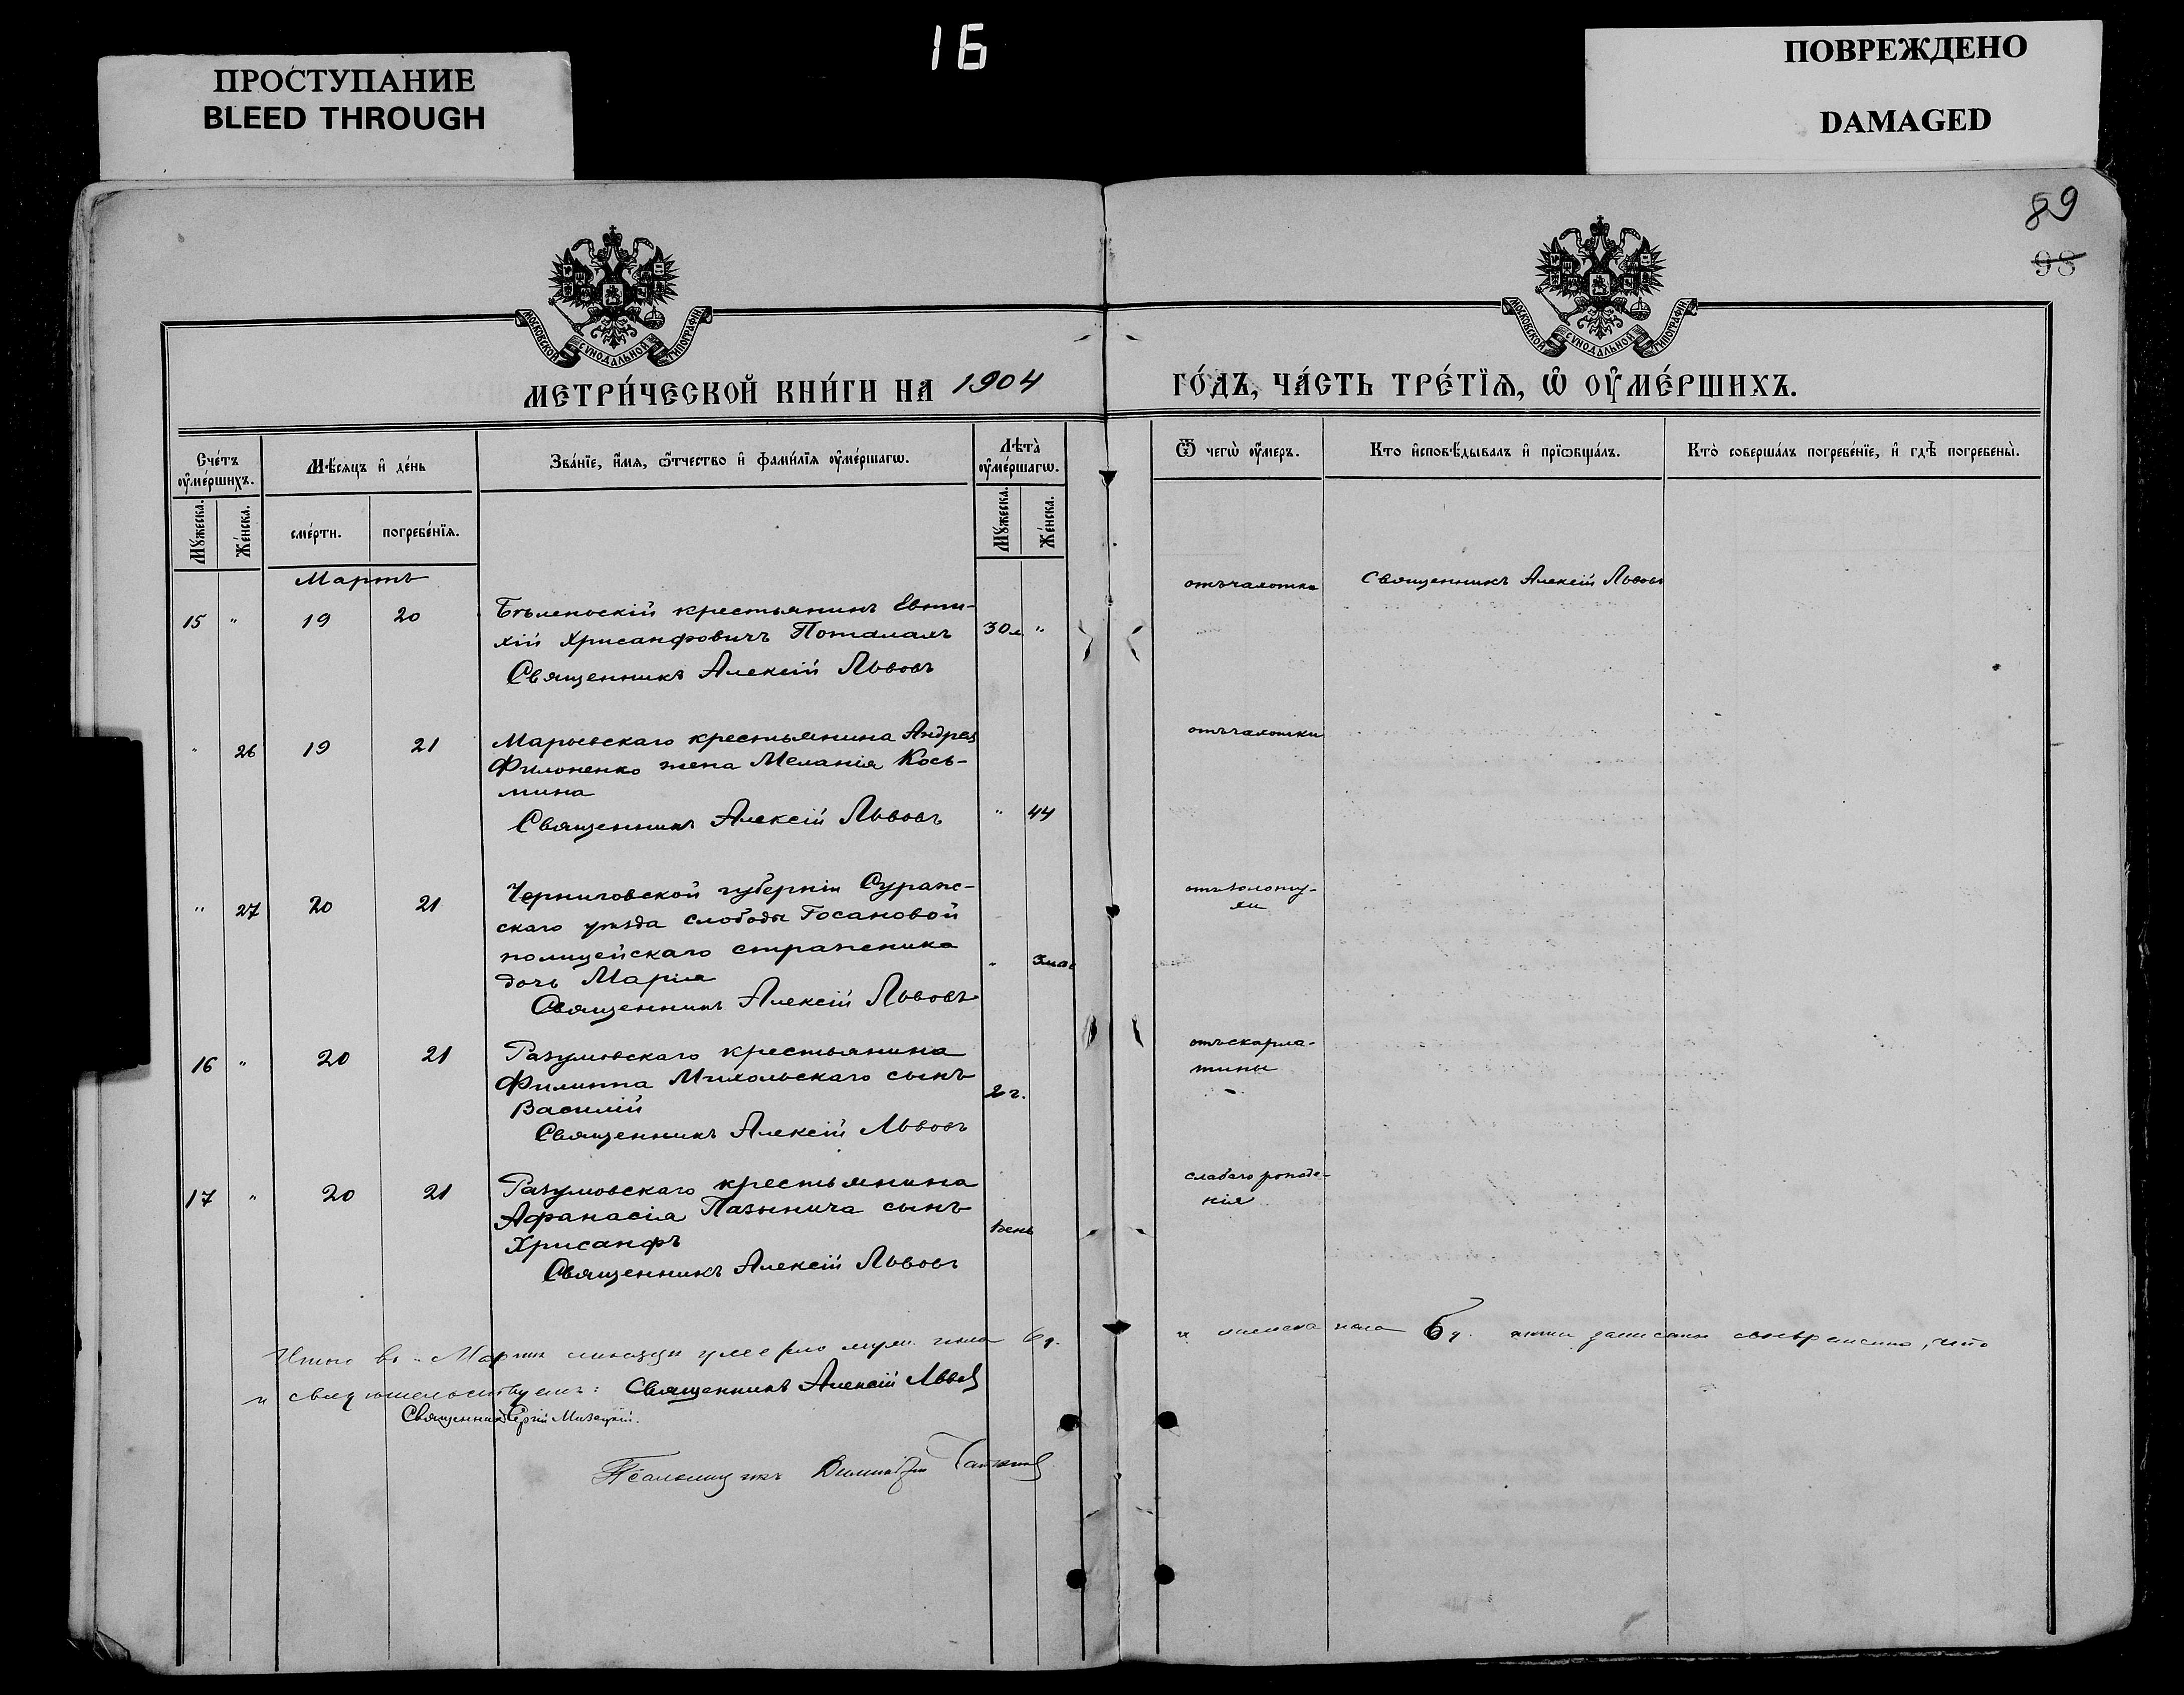 16
ПРОСТУПАНИЕ
BLEED THROUGH
ПОВРЕЖДЕНО
DAMAGED
89
98
МОСКОВСКОЙ СѴНОДАЛЬНОЙ ТИПОГРАФІИ
МОСКОВСКОЙ СѴНОДАЛЬНОЙ ТИПОГРАФІИ
МЕТРИ́ЧЕСКОЙ КНИ́ГИ НА 1904
ГО́ДЪ, ЧА́СТЬ ТРЕ́ТЇѦ, Ѡ ОУ҆МЕ́РШИХЪ.
Сче́тъ оу҆ме́ршихъ.
Мꙋ́жеска.
Же́нска.
Мѣ́сяцъ и҆ де́нь
сме́рти.
погребе́нїѧ.
Зва́нїе, и҆́мѧ, ѻ҆́тчество и҆ фами́лїѧ оу҆ме́ршагѡ.
Лѣ́та оу҆ме́ршагѡ.
Мꙋ́жеска.
Же́нска.
Ѿ чегѡ̀ оу҆́меръ.
Кто̀ и҆сповѣ́дывалъ и҆ прїѡбща́лъ.
Кто̀ соверша́лъ погребе́нїе, и҆ гдѣ̀ погребены̀.
Мартъ
15 " 19 20 Бѣленьскій крестьянинъ Евти-
хій Хрисанфовичъ 30 л "
Священникъ Алексій Львовъ
отъ чахотки
Священникъ Алексій Львовъ
" 26 19 21 Марьевскаго крестьянина Андрея
Филоненко жена Меланія Кось-
мина
Священникъ Алексій Львовъ " 44
отъ чахотки
" 27 20 21 Черниговской губерніи Суражс-
скаго уѣзда слободы Госановой
полицейскаго стражника
дочь Марія "
Священникъ Алексій Львовъ
отъ золоту-
хи
16 " 20 21 Разумовскаго крестьянина
Филиппа Михольскаго сынъ
Василій 2 г.
Священникъ Алексій Львовъ
отъ скарла-
тины
17 " 20 21 Разумовскаго крестьянина
Афанасія Пазынича сынъ
Хрисанфъ день
Священникъ Алексій Львовъ
слабаго рожде-
нія
Итого въ Мартѣ мѣсяцѣ умерло муж. пола
и женска пола что
и свидѣтельствуемъ: Священникъ Алексій Львовъ
Священникъ Сергій
Псаломщикъ Димитрій